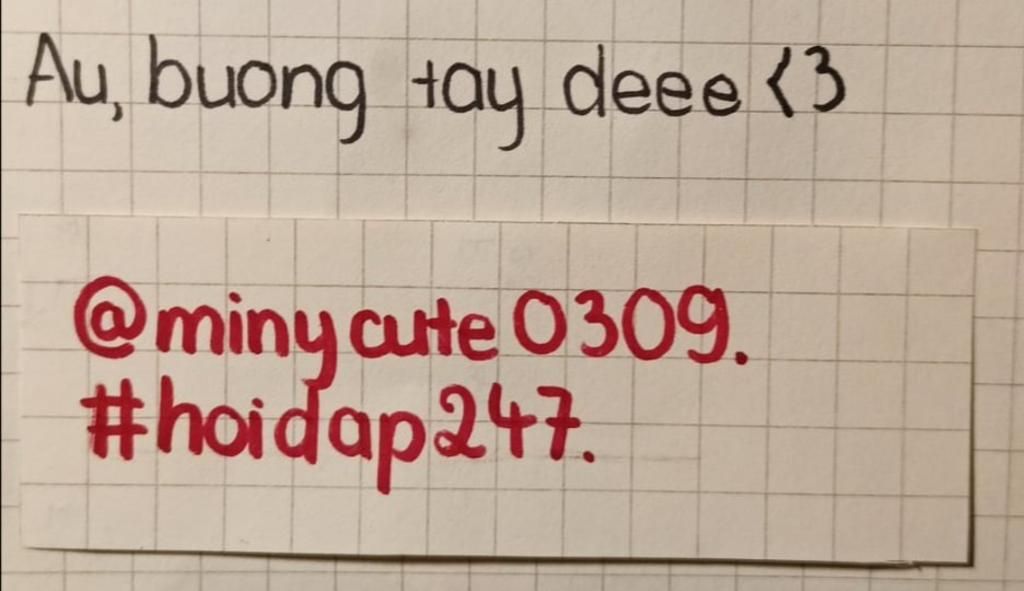 Au, buong tay deee <3
@minycute0309.
#hoidap247.